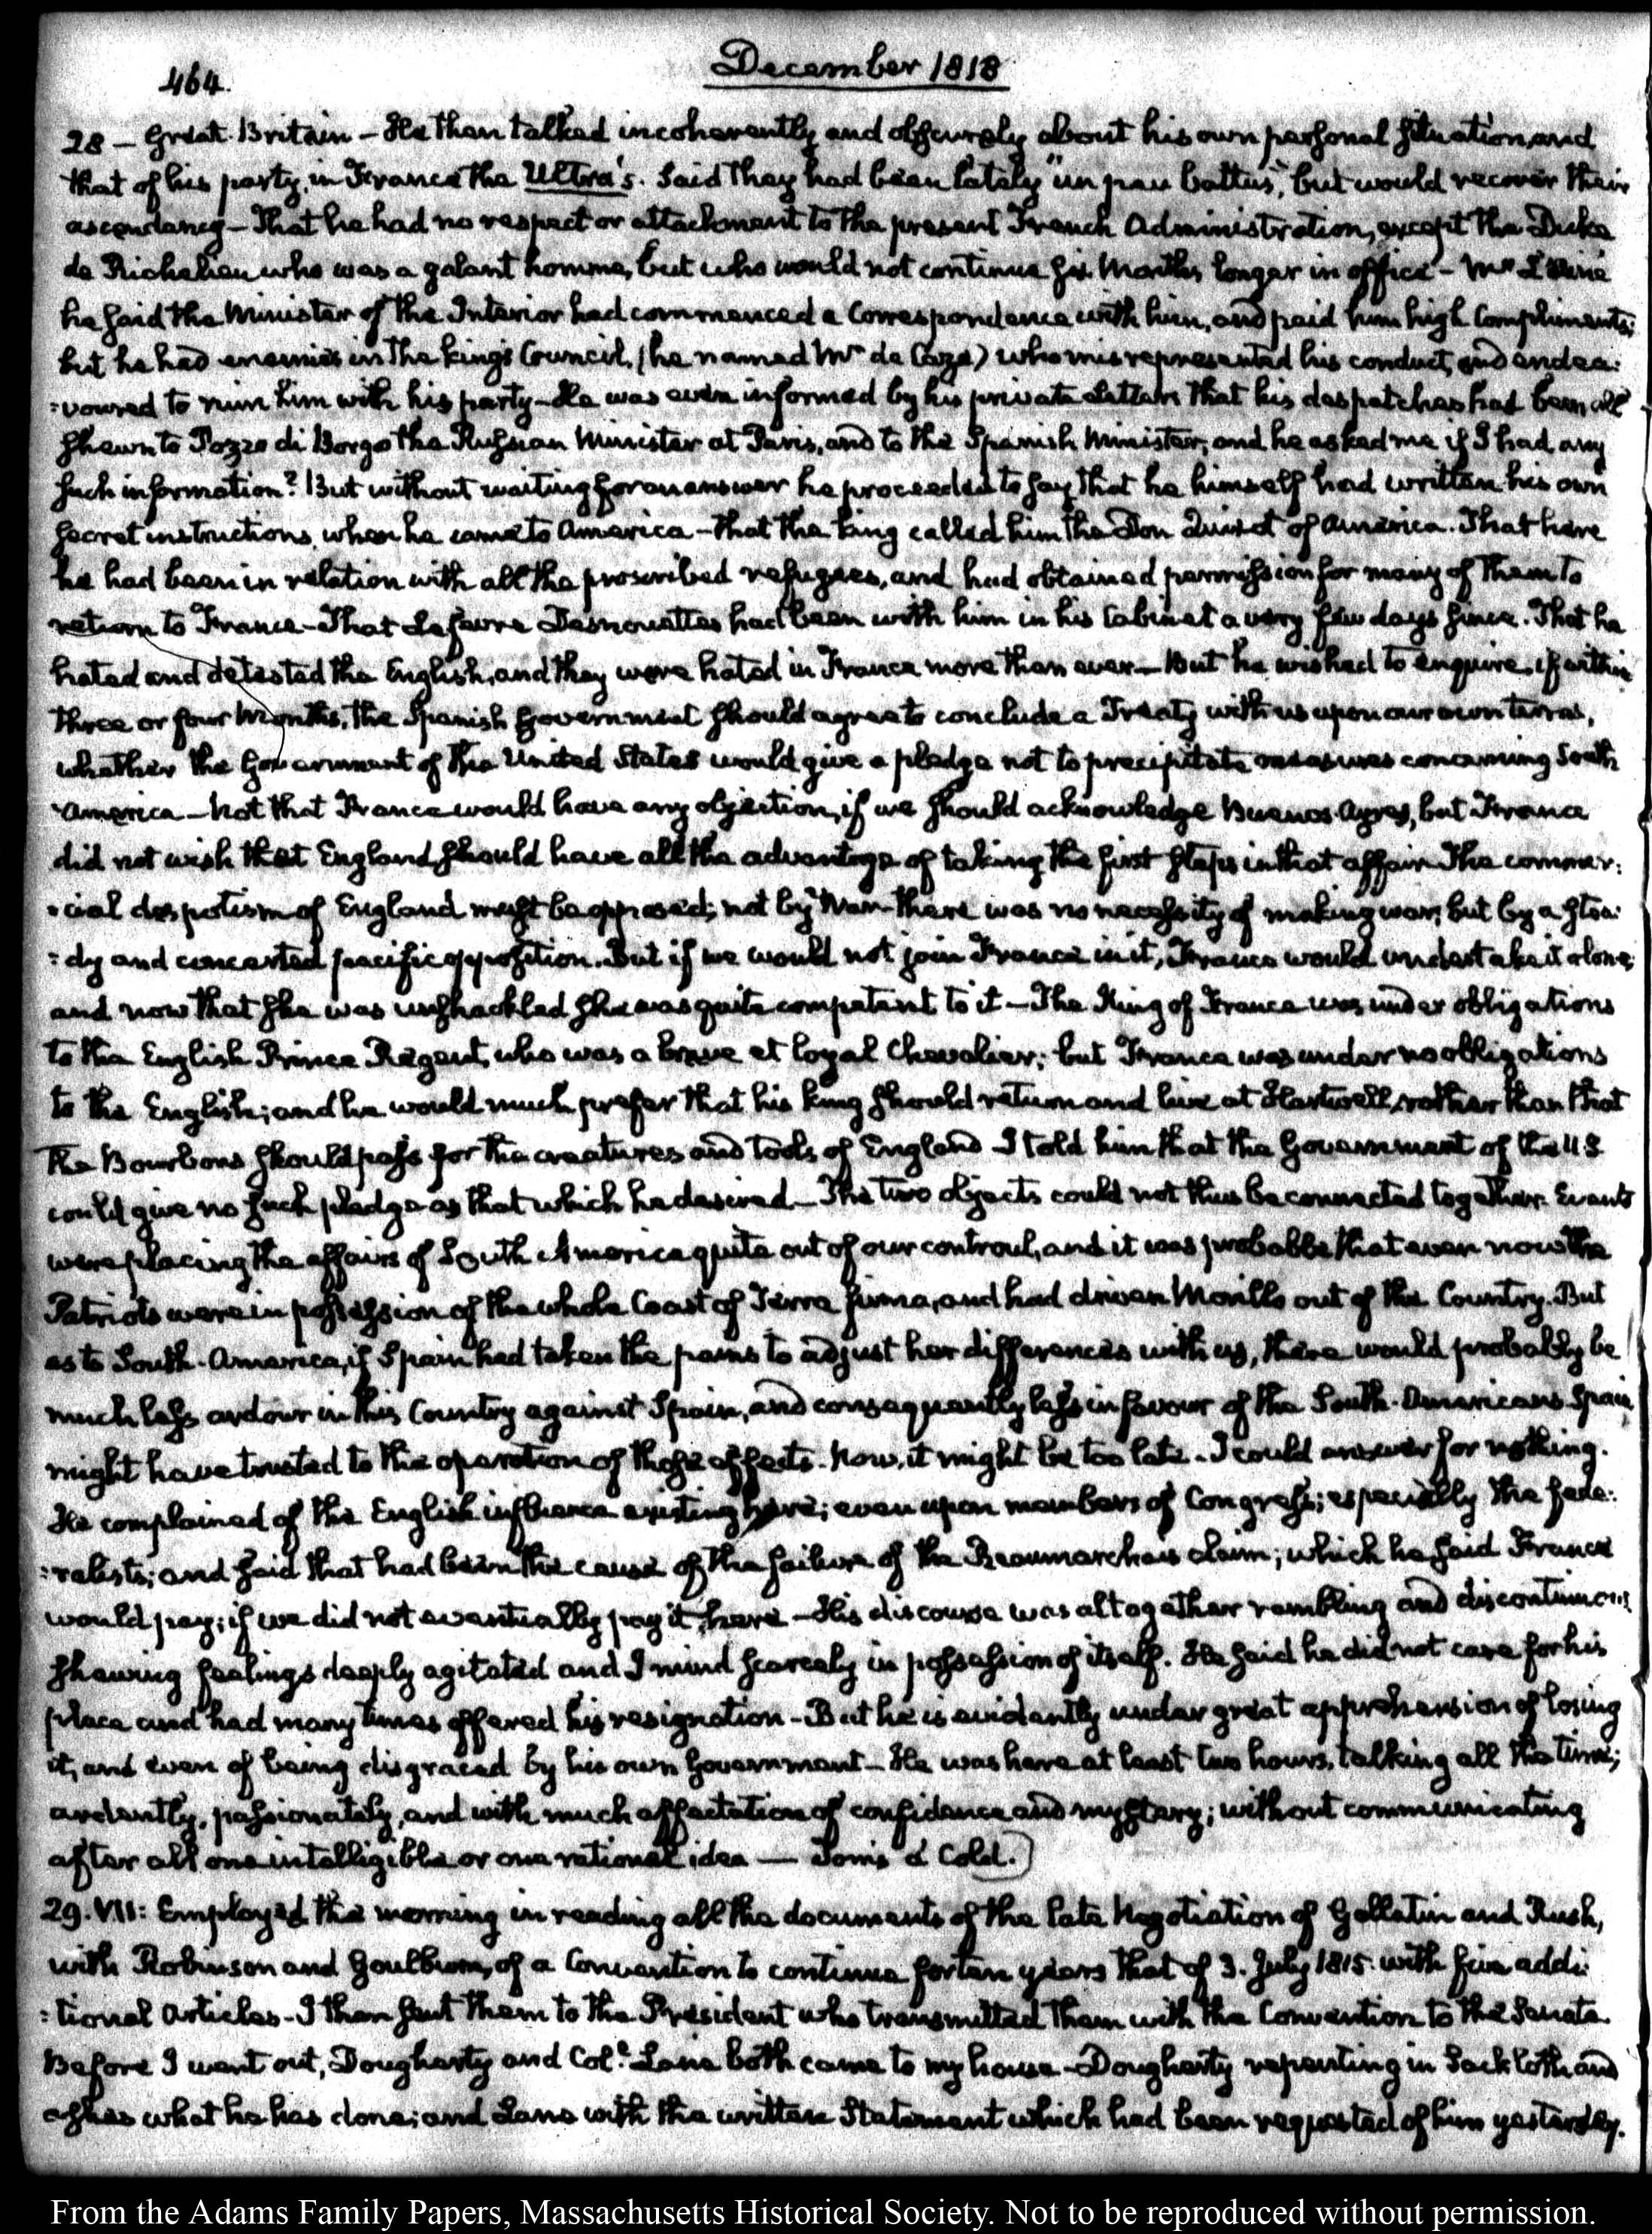 464.
December 1818
28 — Great-Britain — He then talked incoherently and obscurely about his own personal situation, and
that of his party, in France the Ultra's. Said they had been lately "un peu battus," but would recover their
ascendancy — That he had no respect or attachment to the present French Administration, except the Duke
de Richelieu who was a galant homme, but who would not continue six Months longer in office — Mr Lainé
he said the Minister of the Interior had commenced a Correspondence with him, and paid him high Compliments;
but he had enemies in the king's Council, (he named Mr de Caze) who misrepresented his conduct, and endea:
:voured to ruin him with his party — He was even informed by his private Letters that his despatches had been all
shewn to Pozzo di Borgo the Russian Minister at Paris, and to the Spanish Minister; and he asked me if I had any
such information? But without waiting for an answer he proceeded to say that he himself had written his own
secret instructions, when he came to America — that the king called him the Don Quixot of America. That here
he had been in relation with all the proscribed refugees, and had obtained permission for many of them to
return to France — That Lefevre Desnouettes had been with him in his Cabinet a very few days since. That he
hated and detested the English, and they were hated in France more than ever — But he wished to enquire, if within
three or four Months, the Spanish Government should agree to conclude a Treaty with us upon our own terms,
whether the Government of the United States would give a pledge not to precipitate measures concerning South
America — Not that France would have any objection, if we should acknowledge Buenos-Ayres, but France
did not wish that England should have all the advantage of taking the first steps in that affair. The commer:
:cial despotism of England must be opposed; not by War — there was no necessity of making war; but by a stea:
:dy and concerted pacific opposition. But if we would not join France in it, France would undertake it alone;
and now that she was unshackled she was quite competent to it — The King of France was under obligations
to the English Prince Regent, who was a brave et loyal Chevalier; but France was under no obligations
to the English; and he would much prefer that his king should return and live at Hartwell, rather than that
the Bourbons should pass for the creatures and tools of England. I told him that the Government of the U.S.
could give no such pledge as that which he desired — The two objects could not thus be connected together. Events
were placing the affairs of South America quite out of our controul, and it was probable that even now the
Patriots were in possession of the whole Coast of Terra firma, and had driven Morillo out of the Country. But
as to South-America, if Spain had taken the pains to adjust her differences with us, there would probably be
much less ardour in this Country against Spain, and consequently less in favour of the South-Americans. Spain
might have trusted to the operation of those effects. Now, it might be too late. I could answer for nothing.
He complained of the English influence existing here; even upon members of Congress; especially the fede:
:ralists; and said that had been the cause of the failure of the Beaumarchais claim; which he said France
would pay; if we did not eventually pay it, here — His discourse was altogether rambling and discontinuous
shewing feelings deeply agitated and a mind scarcely in possession of itself. He said he did not care for his
place and had many times offered his resignation — But he is evidently under great apprehension of losing
it, and even of being disgraced by his own Government — He was here at least two hours, talking all the time;
ardently, passionately, and with much affectation of confidence and mystery; without communicating
after all one intelligible or one rational idea — Tom's a' Cold.)
29. VII: Employed the morning in reading all the documents of the late Negotiation of Gallatin and Rush,
with Robinson and Goulburn, of a Convention to continue for ten years that of 3. July 1815. with five addi:
:tional Articles. I then sent them to the President who transmitted them with the Convention to the Senate.
Before I went out, Dougherty and Col.l Lane both came to my house — Dougherty repenting in Sackcloth and
ashes what he has done; and Lane with the written Statement which had been requested of him yesterday.
From the Adams Family Papers, Massachusetts Historical Society. Not to be reproduced without permission.